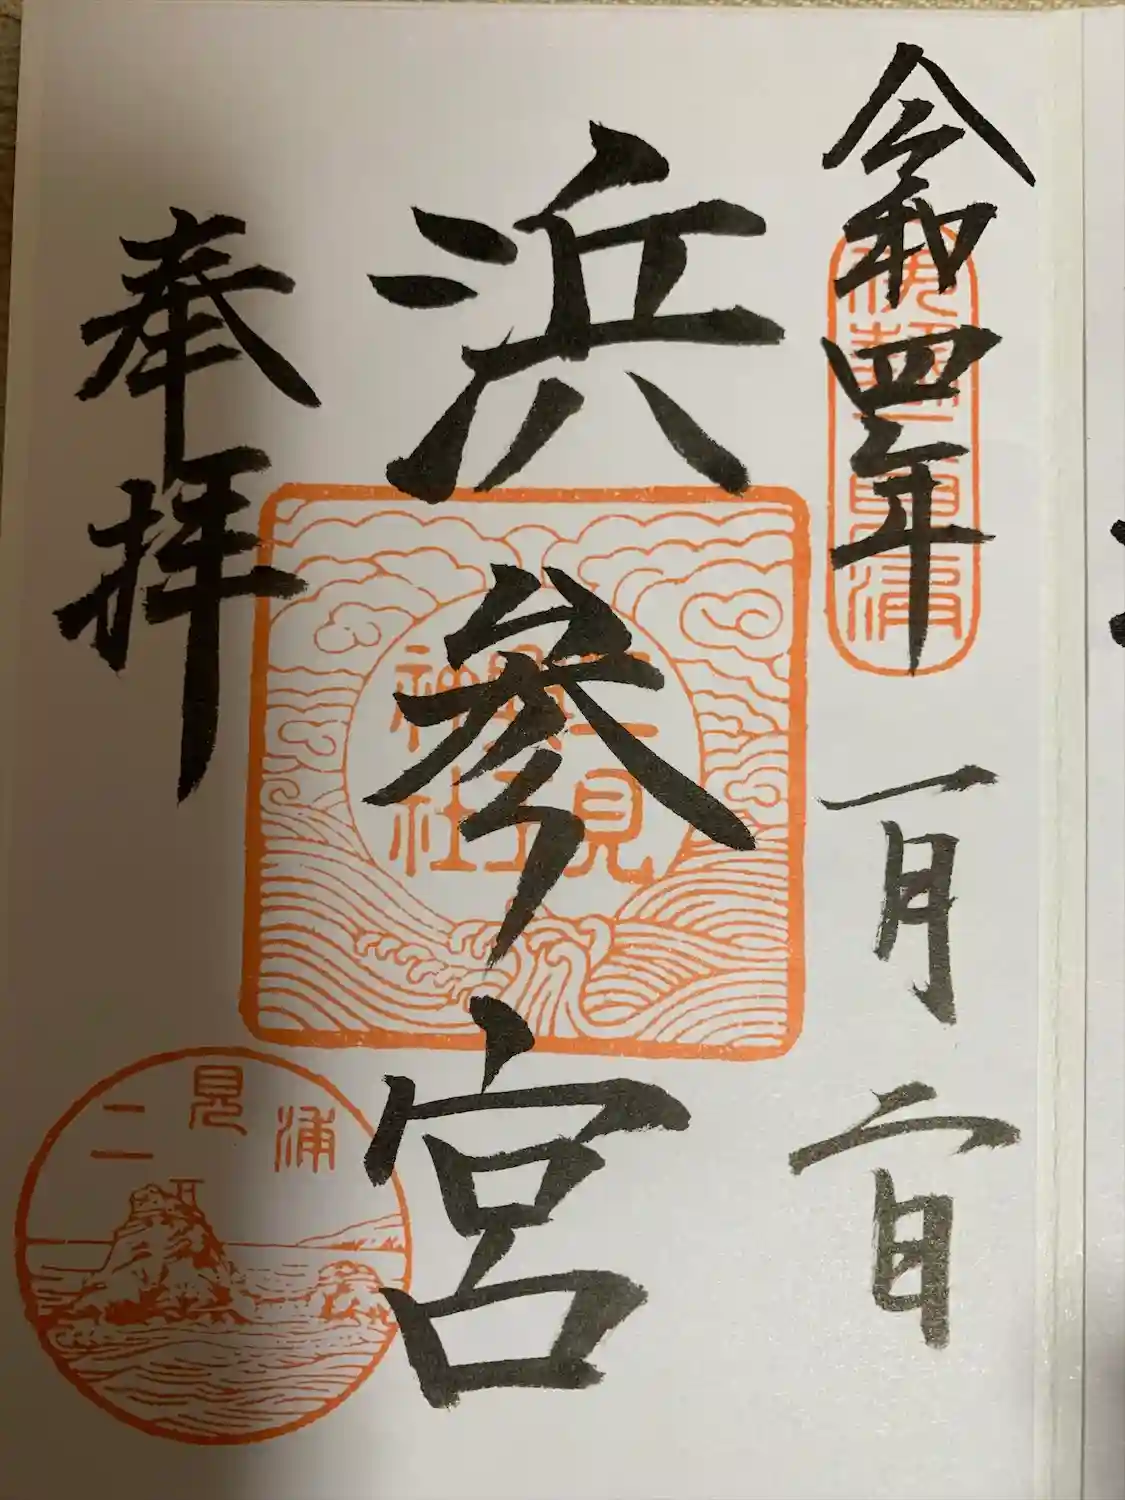 令和四年一月二日
伊勢二見浦
浜参宮
二見興玉神社
奉拝
二見浦